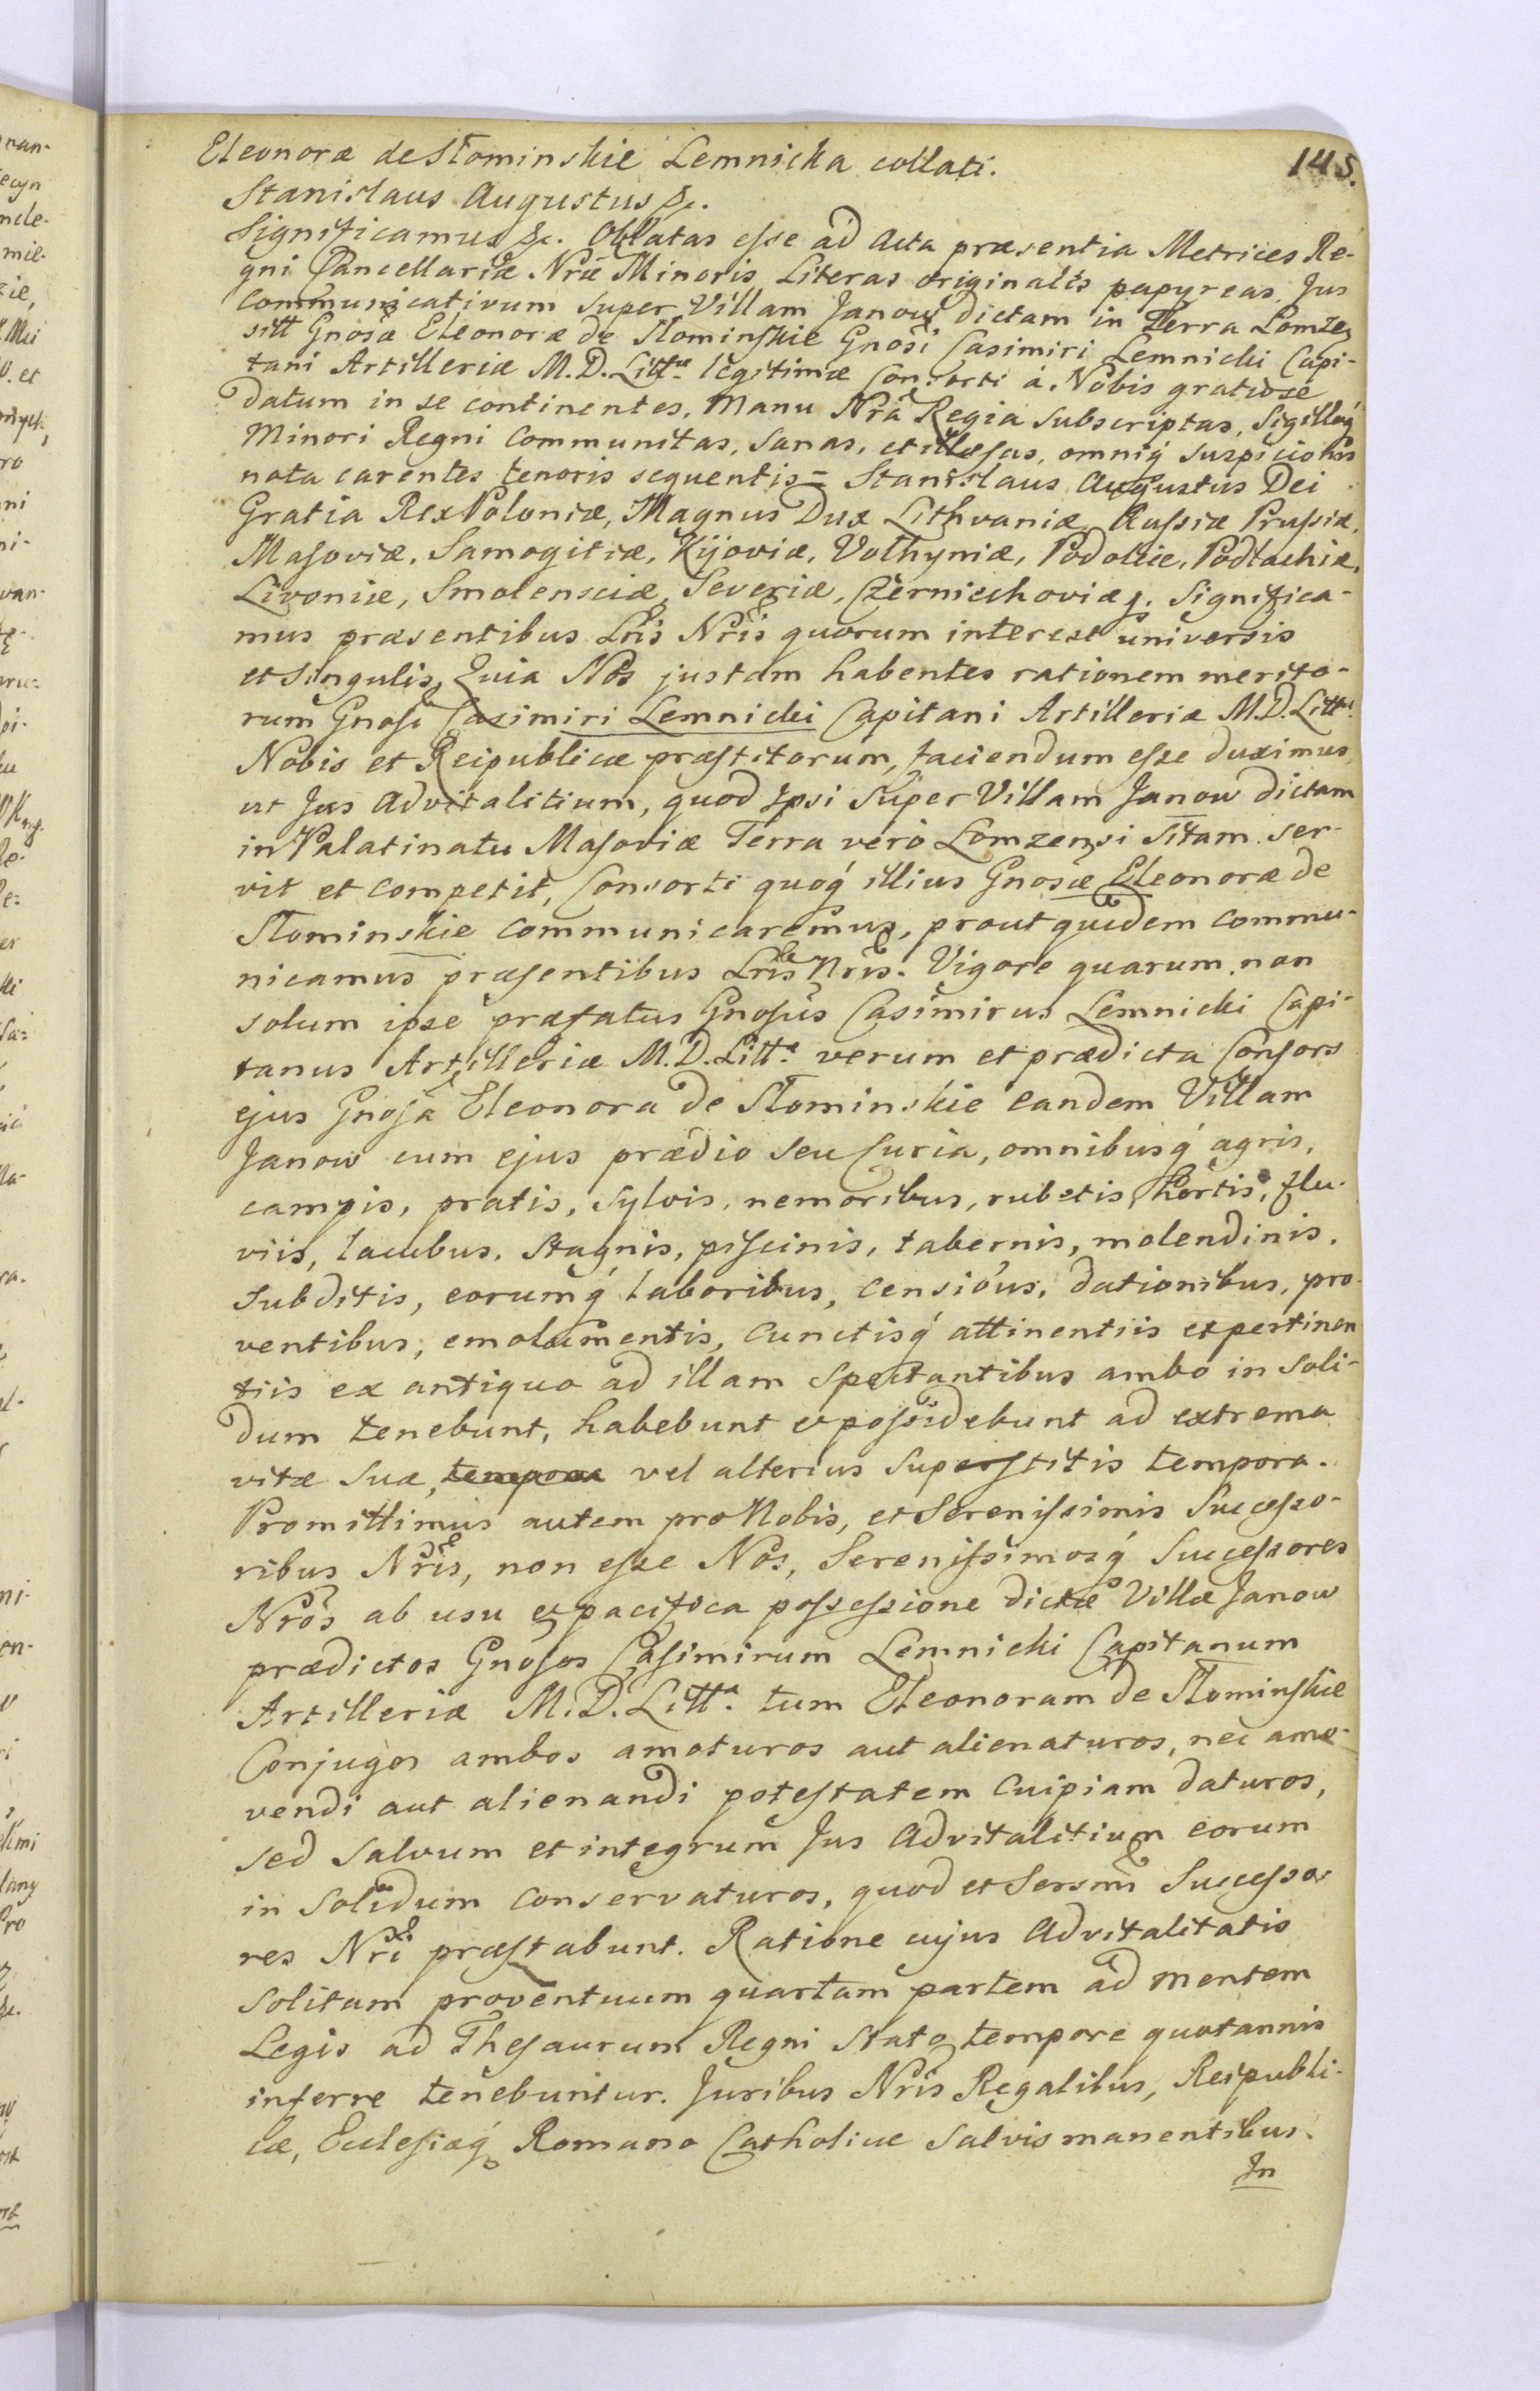 145.
Eleonoræ de Słominskie Lemnicka collati.
Stanislaus Augustus &c.
Significamus &c. Oblatas esse ad Acta præsentia Metrices Re-
gni Cancellariæ Nræ Minoris Literas originales papyreas, Jus
Communicativum super Villam Janow dictam in Terra Lomzen
sitt Gnosæ Eleonoræ de Słominskie Gnosi Casimiri Lemnicki Capi-
tani Artilleriæ M.D. Litta legitimæ Consorti á Nobis gratiose
datum in se continentes, Manu Nra Regia subscriptas, Sigilloq́
Minori Regni communitas, sanas, et illæsas, omniq́ suspicionis
nota carentes tenoris sequentis = Stanislaus Augustus Dei
Gratia Rex Poloniæ, Magnus Dux Lithvaniæ Russiæ Prussiæ,
Masoviæ, Samogitiæ, Kijoviæ, Volhyniæ, Podoliæ, Podlachiæ,
Livoniæ, Smolensciæ, Severiæ, Czerniechoviæq. Significa-
mus præsentibus Lris Nris quorum interest universis
et singulis, Quia Nos justam habentes rationem merito-
rum Gnosi Casimiri Lemnicki Capitani Artilleriæ M.D. Litta
Nobis et Reipublicæ præstitorum, faciendum esse duximus,
ut Jus Advitalitium, quod Ipsi super Villam Janow dictam
in Palatinatu Masoviæ Terra verò Lomzensi sitam ser-
vit et competit, Consorti quoq́ illius Gnosæ Eleonoræ de
Słominskie communicaremus, prout quidem commu-
nicamus præsentibus Lris Nris. Vigore quarum non
solum ipse præfatus Gnosus Casimirus Lemnicki Capi-
tanus Artilleriæ M.D. Litta verum et prædicta Consors
ejus Gnosa Eleonora de Słominskie eandem Villam
Janow cum ejus prædio seu Curia, omnibusq́ agris,
campis, pratis, sylvis, nemoribus, rubetis, hortis, flu-
viis, lacubus, stagnis, piscinis, tabernis, molendinis,
subditis, eorumq́ laboribus, censibus, dationibus, pro-
ventibus, emolumentis, cunctisq́ attinentiis et pertinen
tiis ex antiquo ad illam spectantibus ambo in soli-
dum tenebunt, habebunt et possidebunt ad extrema
vitæ suæ, tempora vel alterius superstitis tempora.
Promittimus autem pro Nobis, et Serenissimis Successo-
ribus Nris, non esse Nos, Serenissimosq́ Successores
Nros ab usu et pacifica possessione dictæ Villæ Janow
prædictos Gnosos Casimirum Lemnicki Capitanum
Artilleriæ M.D. Litta. tum Eleonoram de Słominskie
Conjuges ambos amoturos aut alienaturos, nec amo-
vendi aut alienandi potestatem cuipiam daturos,
sed salvum et integrum Jus Advitalitium eorum
in solidum conservaturos, quod et Sersmi Successo-
res Nri præstabunt. Ratione cujus Advitalitatis
solitam proventuum quartam partem ad mentem
Legis ad Thesaurum Regni stato tempore quotannis
inferre tenebuntur. Juribus Nris Regalibus, Reipubli-
cæ, Ecclesiæq́ Romano Catholicæ salvis manentibus.
In